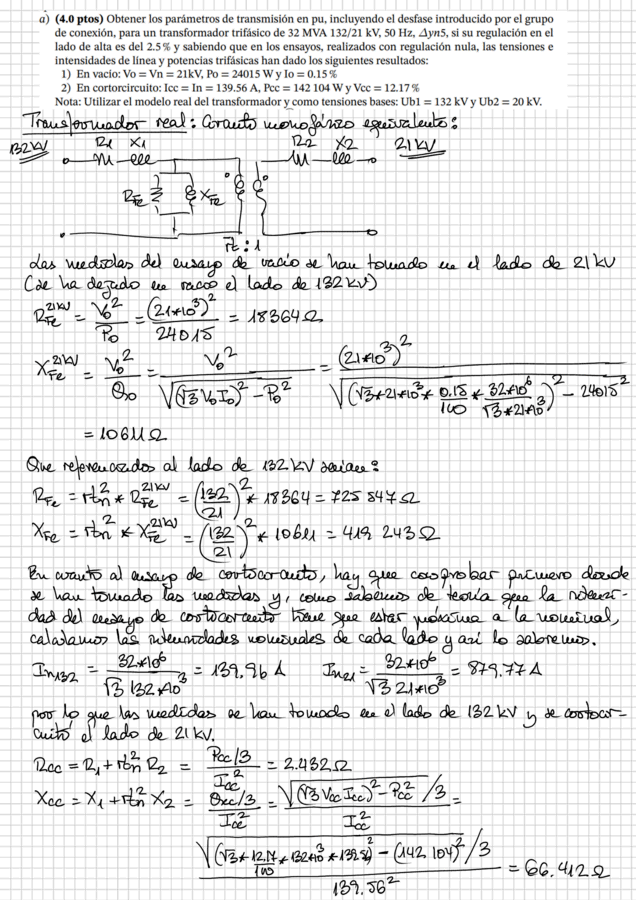 a) (4.0 ptos) Obtener los parámetros de transmisión en pu, incluyendo el desfase introducido por el grupo
de conexión, para un transformador trifásico de 32 MVA 132/21 kV, 50 Hz, Δyn5, si su regulación en el
lado de alta es del 2.5 % y sabiendo que en los ensayos, realizados con regulación nula, las tensiones e
intensidades de línea y potencias trifásicas han dado los siguientes resultados:
1) En vacio: Vo = Vn = 21kV, Po = 24015 W y Io = 0.15 %
2) En cortocircuito: Icc = In = 139.56 A, Pcc = 142 104 W y Vcc = 12.17 %
Nota: Utilizar el modelo real del transformador y como tensiones bases: Ub1 = 132 kV y Ub2 = 20 kV.
Transformador real: Circuito monofásico equivalente:
132kV R1 X1 R2 X2 21kV
RFe XFe
rt : 1
Las medidas del ensayo de vacío se han tomado en el lado de 21 kV
(se ha dejado en vacío el lado de 132 kV)
RFe^21kV = Vo²/Po = (21*10³)²/24015 = 18364 Ω
XFe^21kV = Vo²/Qo = Vo²/√((√3 Vo Io)² - Po²) = (21*10³)²/√((√3*21*10³*0.15/100*32*10⁶/(√3*21*10³))² - 24015²)
= 10611 Ω
Que referenciados al lado de 132 kV serían:
RFe = rtn² * RFe^21kV = (132/21)² * 18364 = 725 847 Ω
XFe = rtn² * XFe^21kV = (132/21)² * 10611 = 419 243 Ω
En cuanto al ensayo de cortocircuito, hay que comprobar primero donde
se han tomado las medidas y, como sabemos de teoría que la intensi-
dad del ensayo de cortocircuito tiene que estar próxima a la nominal,
calculamos las intensidades nominales de cada lado y así lo sabremos.
In132 = 32*10⁶/(√3 132*10³) = 139.96 A In21 = 32*10⁶/(√3 21*10³) = 879.77 A
por lo que las medidas se han tomado en el lado de 132 kV y se cortocir-
cuitó el lado de 21 kV.
Rcc = R1 + rtn² R2 = (Pcc/3)/Icc² = 2.432 Ω
Xcc = X1 + rtn² X2 = (Qcc/3)/Icc² = (√((√3 Vcc Icc)² - Pcc²)/3)/Icc² =
(√((√3*12.17/100*132*10³*139.56)² - (142 104)²)/3)/139.56² = 66.412 Ω